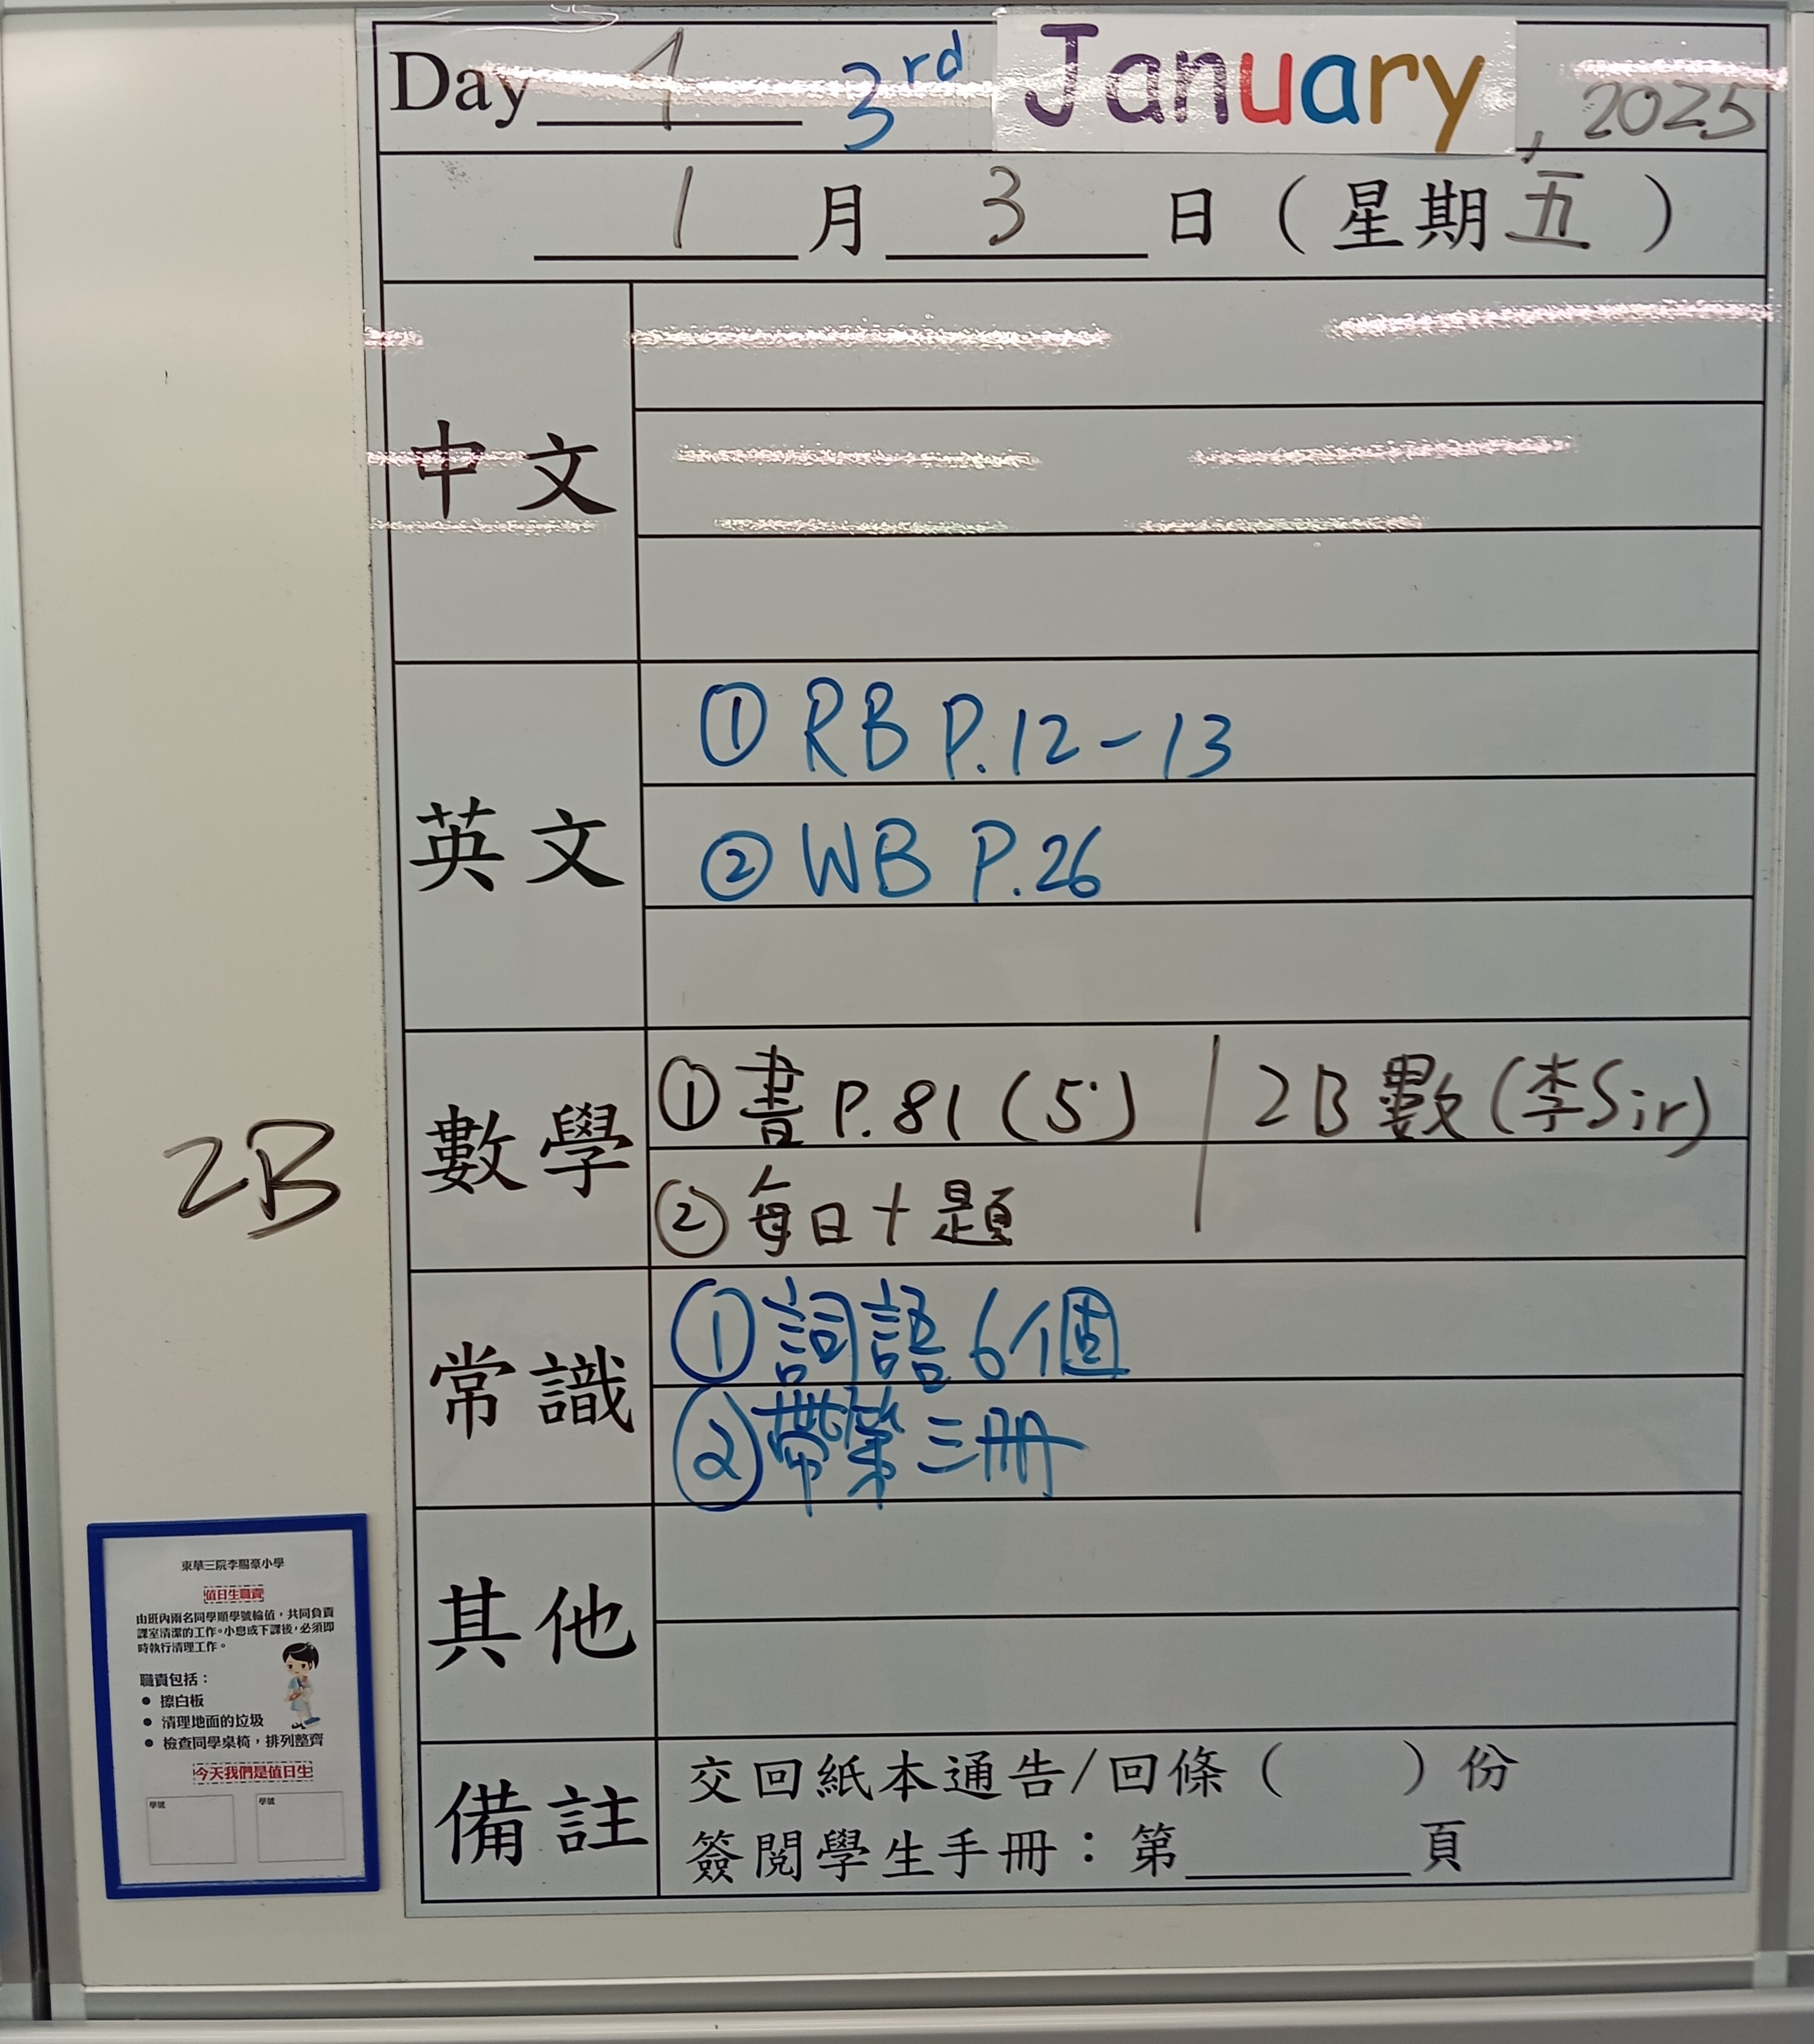 Day 1 3rd January, 2025
1 月 3 日 ( 星期五 )
中文
英文
① RB P.12-13
② WB P.26
數學
① 書 P.81 (5) / 2B 數 (李Sir)
② 每日十題
2B
常識
① 詞語 6個
② 帶第三冊
其他
備註
交回紙本通告/回條 ( ) 份
簽閱學生手冊：第 頁
東華三院李賜豪小學
值日生職責
由班內兩名同學順學號輪值，共同負責
課室清潔的工作。小息或下課後，必須即
時執行清理工作。
職責包括：
● 擦白板
● 清理地面的垃圾
● 檢查同學桌椅，排列整齊
今天我們是值日生
學號 學號